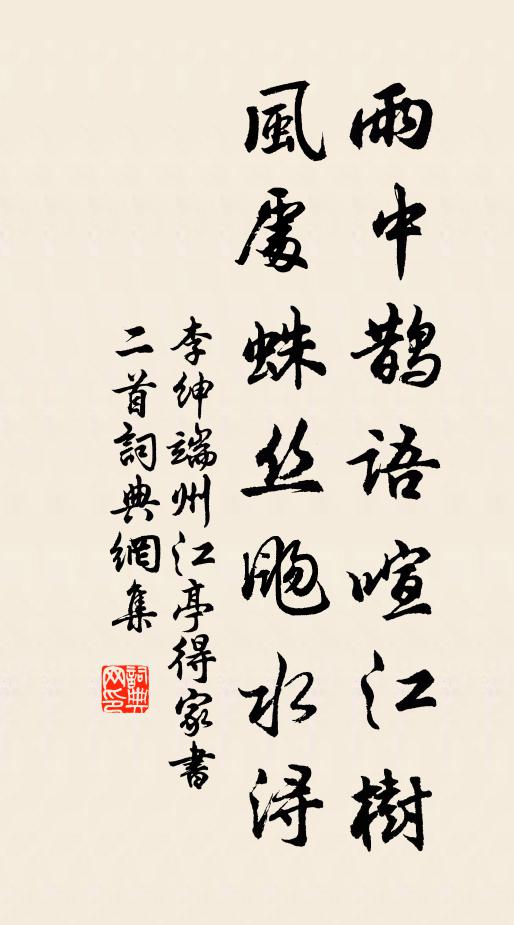 雨中鵲語喧江樹
風處蛛丝颺水潯
李绅端州江亭得家書
二首詞典網集
詞典网印